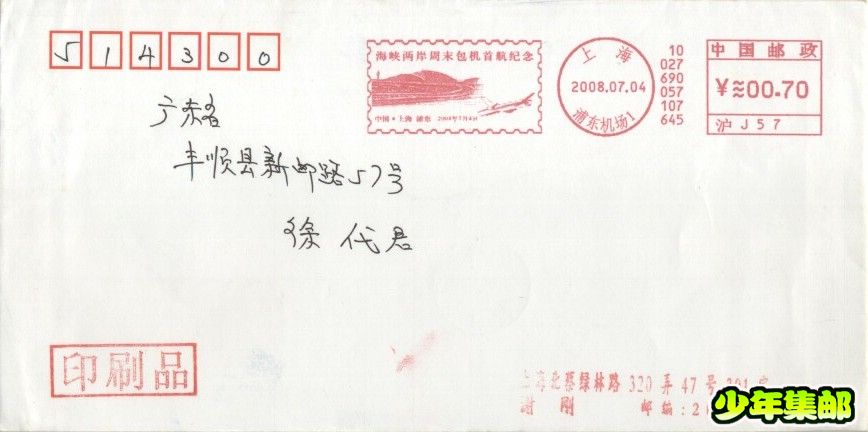 514300
海峡两岸周末包机首航纪念
中国·上海 浦东 2008年7月4日
上海
2008.07.04
浦东机场1
10
027
690
057
107
645
中国邮政
¥≈00.70
沪J57
广东省
丰顺县新邮路57号
徐代君
印刷品
上海北蔡绿林路 320 弄 47 号 201 室
谢 刚 邮编:2
少年集邮